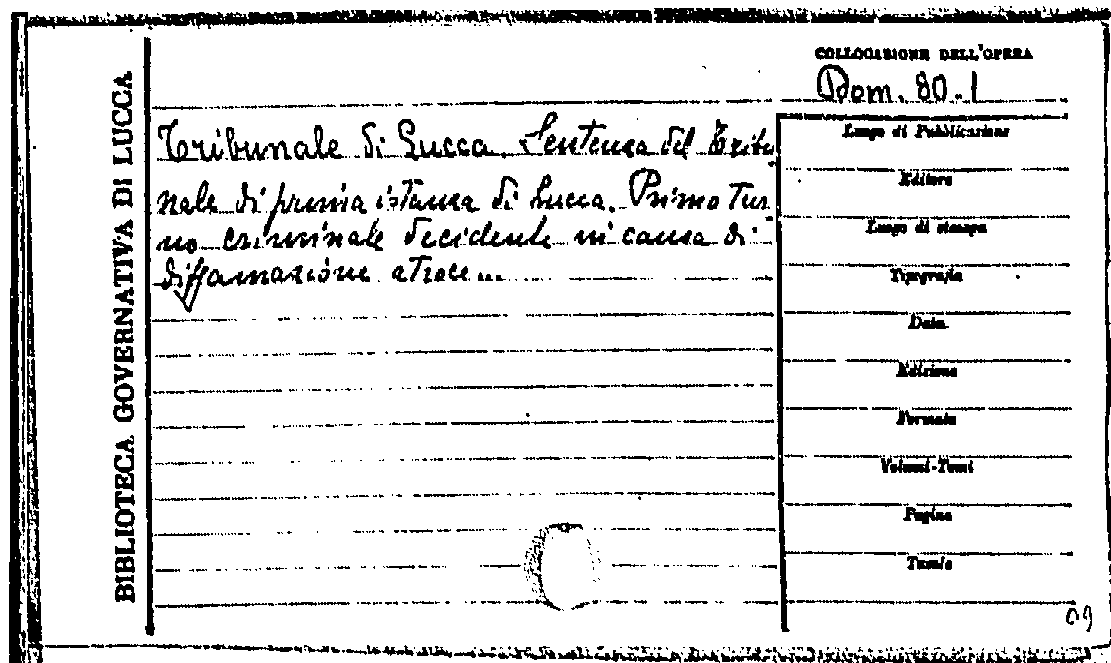 BIBLIOTECA GOVERNATIVA DI LUCCA
COLLOCAZIONE DELL'OPERA
Dom. 80.1
Tribunale di Lucca. Sentenza del Tribu
nale di prima istanza di Lucca. Primo Tur
no criminale decidente in causa di
diffamazione atroce...
Luogo di Pubblicazione
Editore
Luogo di stampa
Tipografia
Data
Edizione
Formato
Volumi-Tomi
Pagine
Tavole
09